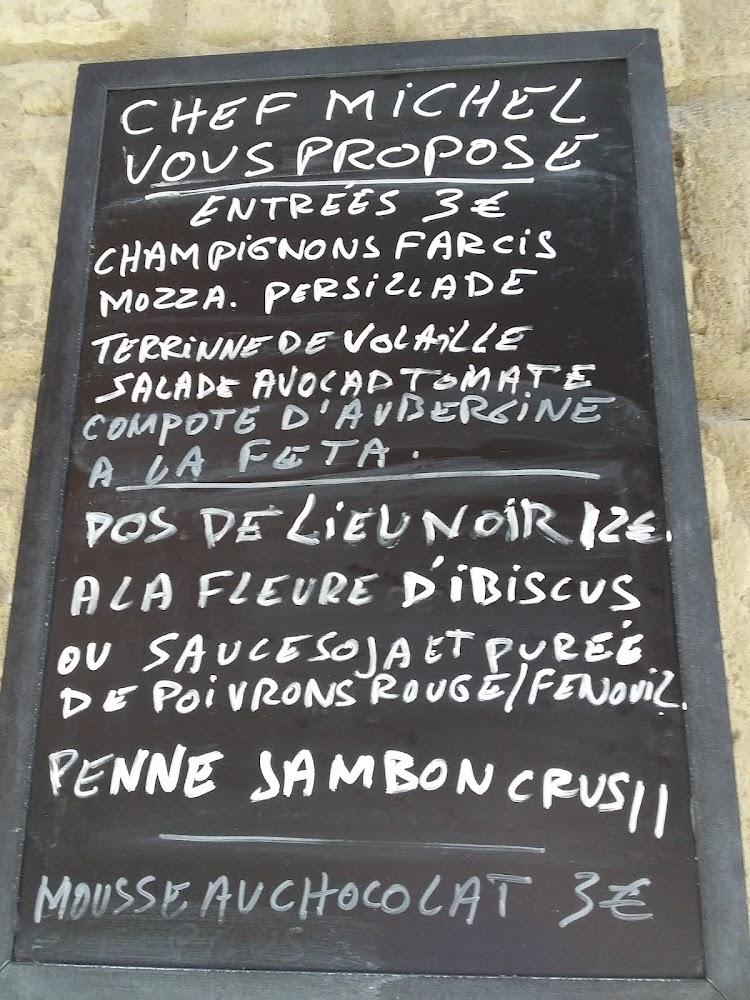 CHEF MiCHEL
VOUS PROPOSE
ENTRÉES 3€
CHAMPiGNONS FARCiS
MOZZA. PERSiLLADE
TERRiNNE DE VOLAiLLE
SALADE AVOCAD TOMATE
COMPOTE D'AUBERGINE
A LA FETA.
DOS DE LiEU NOiR 12€.
A LA FLEURE D'iBiSCUS
OU SAUCE SOJA ET PURÉE
DE POiVRONS ROUGE/FENOUiL.
PENNE JAMBON CRUS 11
MOUSSE AU CHOCOLAT 3€